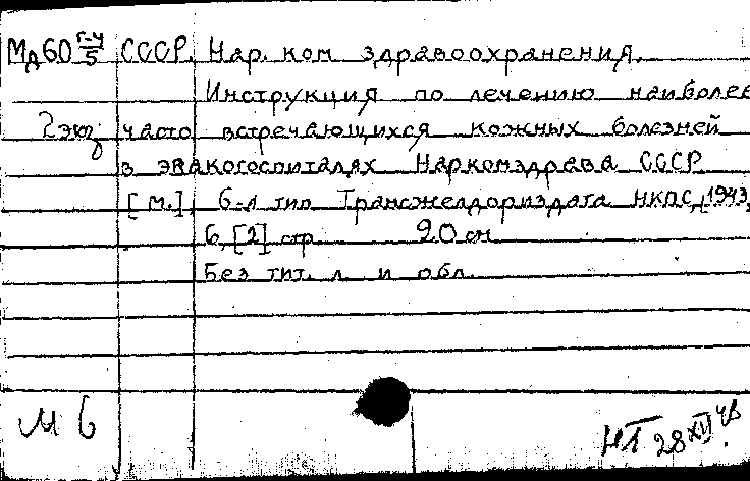 Мд60 Г-4/5 СССР. Нар. ком здравоохранения.
Инструкция по лечению наиболее
2 экз часто встречающихся кожных болезней
в эвакогоспиталях Наркомздрава СССР
[М.], 6-я тип Трансжелдориздата НКПС, [1943]
6, [2] стр. 20 см
Без тит. л. и обл.
М 6
28 XII 48